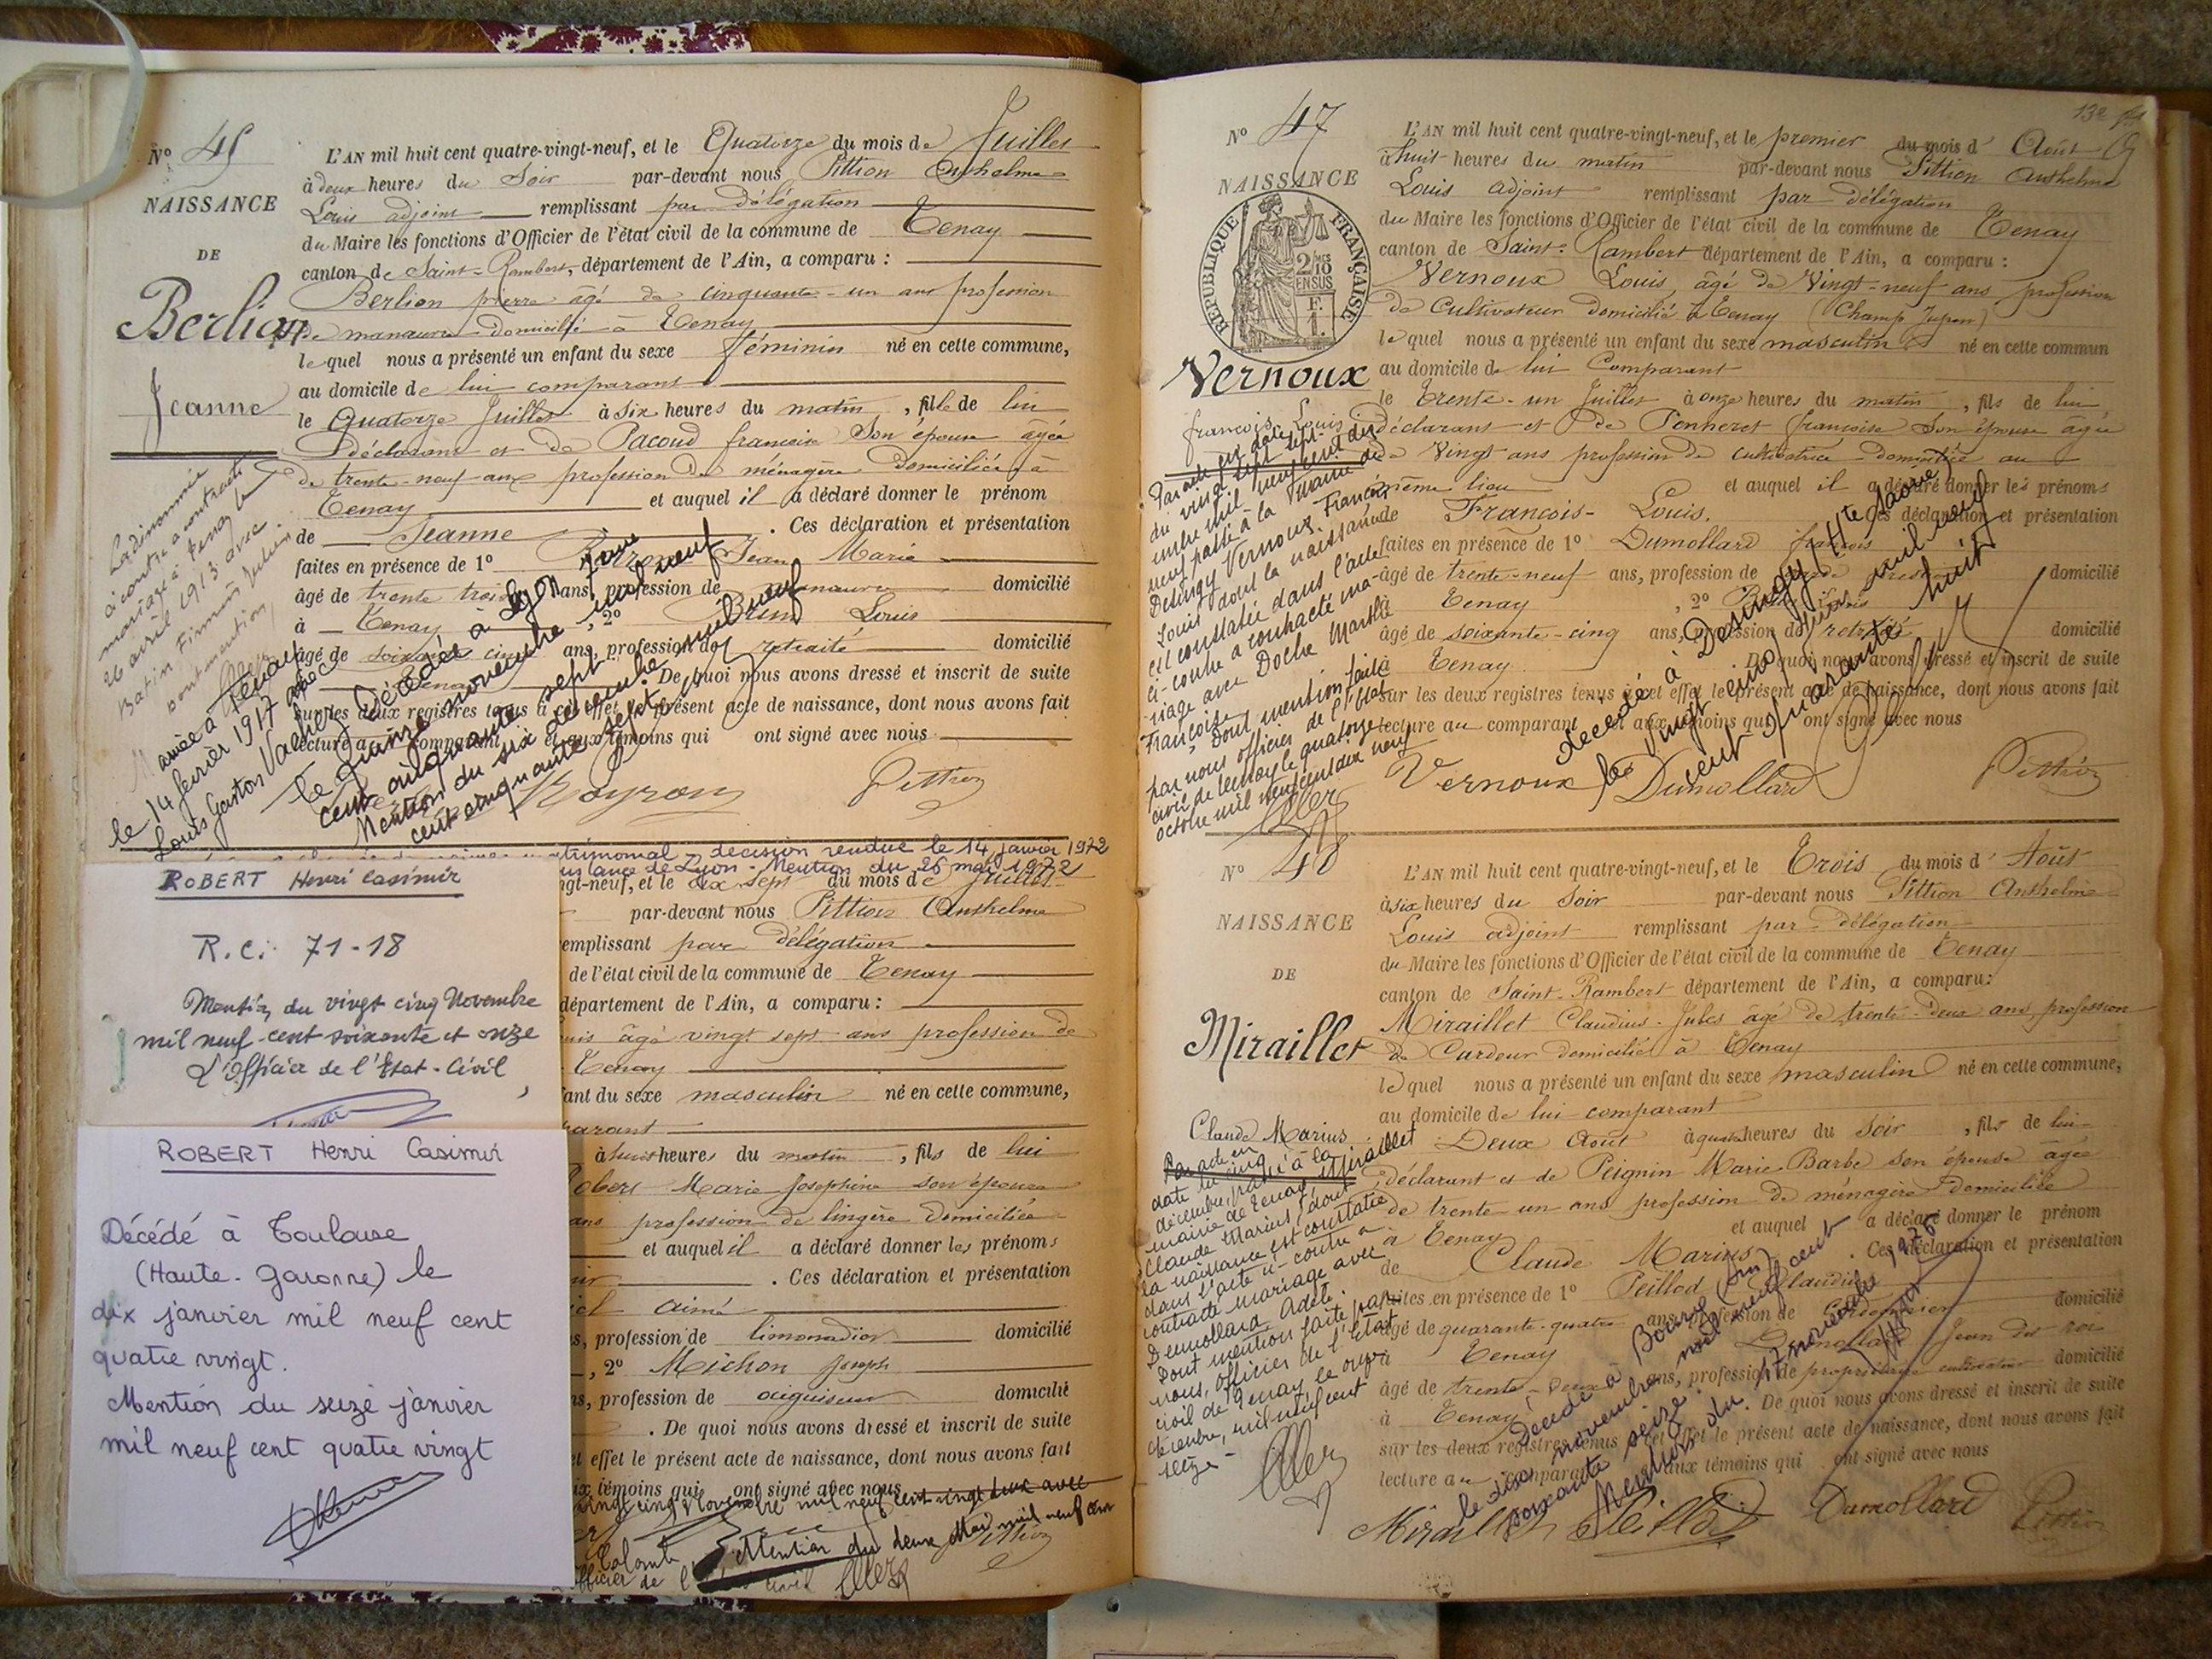 N° 45
NAISSANCE
DE
Berlion
Jeanne
L'AN mil huit cent quatre-vingt-neuf, et le Quatorze du mois de Juillet
à deux heures du Soir par-devant nous Pittion Anthelme
Louis adjoint remplissant par délégation
du Maire les fonctions d'Officier de l'état civil de la commune de Tenay
canton de Saint-Rambert, département de l'Ain, a comparu :
Berlion pierre âgé de cinquante-un ans profession
de manœuvre domicilié à Tenay
lequel nous a présenté un enfant du sexe féminin né en cette commune,
au domicile de lui comparant
le Quatorze Juillet à six heures du matin, fille de lui
déclarant et de Pacoud francoise Son épouse âgée
de trente-neuf ans profession de ménagère domiciliée à
Tenay et auquel il a déclaré donner le prénom
de Jeanne. Ces déclaration et présentation
faites en présence de 1° Jean Marie
âgé de trente trois ans, profession de manœuvre domicilié
à Tenay, 2° Louis
âgé de soixante cinq ans, profession de retraité domicilié
à Tenay. De quoi nous avons dressé et inscrit de suite
sur les deux registres tenus à cet effet le présent acte de naissance, dont nous avons fait
lecture au comparant et aux témoins qui ont signé avec nous
Pittion
La dénommée
ci contre a contracté
mariage à Tenay le
26 avril 1913 avec
Batin Firmin Julien
dont mention,
Mariée à Tenay
le 14 février 1917 avec
Louis Gaston Vacher
Décédée à Lyon
le quinze novembre mil neuf
cent cinquante sept
Mention du six décembre mil neuf
cent cinquante sept
matrimonial - decision rendue le 14 janvier 1972
instance de Lyon - Mention du 26 mai 1972
ROBERT Henri Casimir
R.C: 71-18
Mention du vingt cinq Novembre
mil neuf-cent soixante et onze
L'Officier de l'Etat-Civil,
ROBERT Henri Casimir
Décédé à Toulouse
(Haute-Garonne) le
dix janvier mil neuf cent
quatre vingt.
Mention du seize janvier
mil neuf cent quatre vingt
ngt-neuf, et le dix sept du mois de Juillet
par-devant nous Pittion Anthelme
emplissant par délégation
de l'état civil de la commune de Tenay
département de l'Ain, a comparu :
ouis âgé vingt sept ans profession de
Tenay
ant du sexe masculin né en cette commune,
parant
à huit heures du matin, fils de lui
Robert Marie Josephine son épouse
ans profession de lingère domiciliée
et auquel il a déclaré donner les prénoms
mir. Ces déclaration et présentation
iel aimé
s, profession de limonadier domicilié
, 2° Michon Joseph
ns, profession de aiguiseur domicilié
. De quoi nous avons dressé et inscrit de suite
et effet le présent acte de naissance, dont nous avons fait
ux témoins qui ont signé avec nous
vingt cinq Novembre mil neuf cent vingt deux avec
Colomb Mention du deux Mai mil neuf cent
officier de l'état civil
N° 47
NAISSANCE
RÉPUBLIQUE FRANÇAISE
2/10
EN SUS
Vernoux
francois Louis
L'AN mil huit cent quatre-vingt-neuf, et le premier du mois d'Août
à huit heures du matin par-devant nous Pittion Anthelme
Louis adjoint remplissant par délégation
du Maire les fonctions d'Officier de l'état civil de la commune de Tenay
canton de Saint-Rambert département de l'Ain, a comparu :
Vernoux Louis, âgé de Vingt-neuf ans profession
de Cultivateur domicilié à Tenay (Champ Jupon)
lequel nous a présenté un enfant du sexe masculin né en cette commun
au domicile de lui Comparant
le Trente-un Juillet à onze heures du matin, fils de lui
déclarant et de Ponheret francoise Son épouse âgée
de Vingt ans profession de cultivatrice domiciliée au
même lieu et auquel il a déclaré donner les prénoms
de François-Louis. Ces déclaration et présentation
faites en présence de 1° Dumollard françois
âgé de trente-neuf ans, profession de domicilié
à Tenay, 2° Louis
âgé de soixante-cinq ans, profession de retraité domicilié
à Tenay. De quoi nous avons dressé et inscrit de suite
sur les deux registres tenus à cet effet le présent acte de naissance, dont nous avons fait
lecture au comparant et aux témoins qui ont signé avec nous
Vernoux Dumollard Pittion
Par acte en date
du vingt sept sept-
embre mil neuf cent dix
neuf passé à la mairie de
Desingy Vernoux Francois
Louis dont la naissance
est constatée dans l'acte
ci-contre a contracté ma-
riage avec Doche Marthe
Françoise. Dont mention faite
par nous officier de l'Etat
civil de Tenay le quatorze
octobre mil neuf cent dix neuf
Décédé à Desingy (Hte Savoie)
le vingt cinq Juin mil neuf
cent quarante huit
N° 48
NAISSANCE
DE
Miraillet
Claude Marius
L'AN mil huit cent quatre-vingt-neuf, et le Trois du mois d'Août
à six heures du Soir par-devant nous Pittion Anthelme
Louis adjoint remplissant par délégation
du Maire les fonctions d'Officier de l'état civil de la commune de Tenay
canton de Saint-Rambert département de l'Ain, a comparu:
Miraillet Claudius-Jules âgé de trente-deux ans profession
de Cardeur domicilié à Tenay
lequel nous a présenté un enfant du sexe masculin né en cette commune,
au domicile de lui comparant
Deux Août à quatre heures du Soir, fils de lui
déclarant et de Peignin Marie Barbe son épouse âgée
de trente un ans profession de ménagère domiciliée
à Tenay et auquel a déclaré donner le prénom
de Claude Marius. Ces déclaration et présentation
faites en présence de 1° Peillod Claudius
âgé de quarante-quatre ans, profession de Cordonnier domicilié
à Tenay Dumollard Jean
âgé de trente-deux ans, profession de propriétaire cultivateur domicilié
à Tenay. De quoi nous avons dressé et inscrit de suite
sur les deux registres tenus à cet effet le présent acte de naissance, dont nous avons fait
lecture au comparant et aux témoins qui ont signé avec nous
Miraillet Peillod Dumollard Pittion
Par acte en
date du cinq
décembre, passé à la
mairie de Tenay Miraillet
Claude Marius, dont
la naissance est constatée
dans l'acte ci-contre a
contracté mariage avec
Dumollard Adèle.
Dont mention faite par
nous, officier de l'Etat
civil de Tenay le onze
décembre, mil neuf cent
seize -
Décédé à Bourg (Ain)
le dix novembre mil neuf cent
soixante seize
Mention du 17 novembre 1976